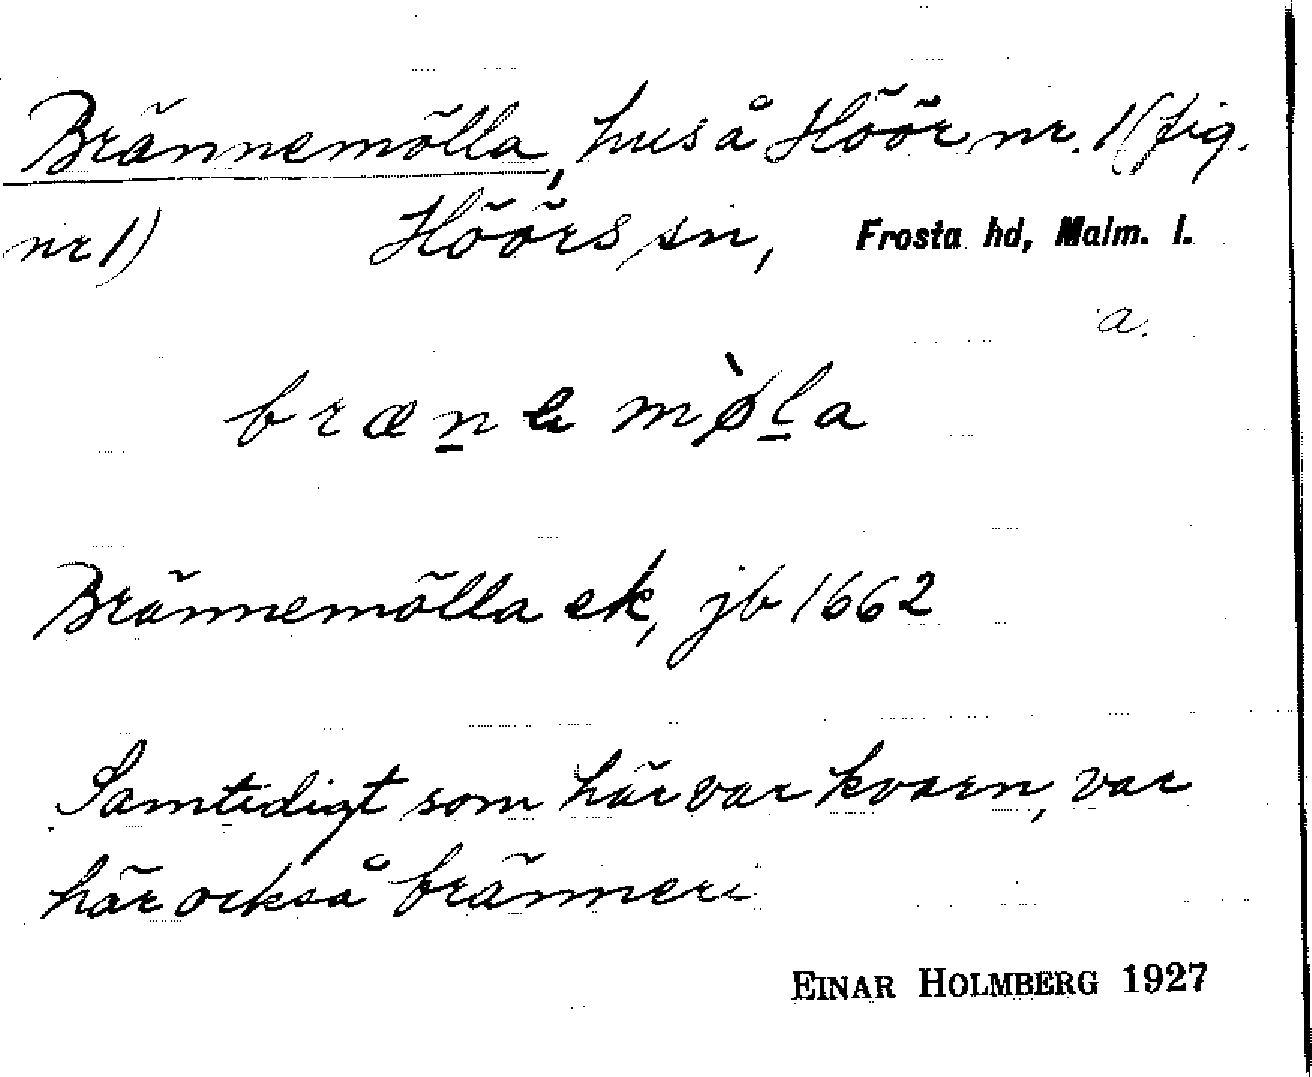 Brännemölla, hus å Höör nr. 1 (fig.
nr 1) Höörs sn, Frosta hd, Malm. l.
a.
bræn̲e mø̀l̲a
Brännemölla ek, jb 1662
Samtidigt som här var kvarn, var
här också bränneri
EINAR HOLMBERG 1927